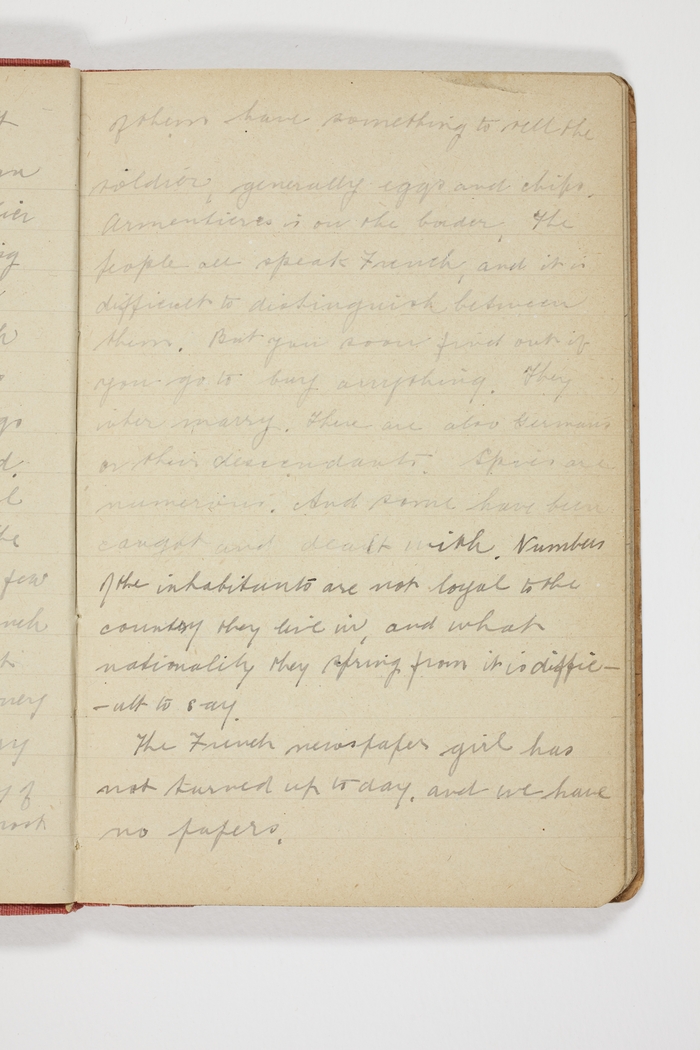 of them have something to sell the
soldier, generally eggs and chips.
Armentieres is on the border. The
people all speak French, and it is
difficult to distinguish between
them. But you soon find out if
you go to buy anything. They
inter marry. There are also Germans
or their descendants. Spies are
numerous. And some have been
caught and dealt with. Numbers
of the inhabitants are not loyal to the
country they live in, and what
nationality they spring from it is diffic-
-ult to say.
The French newspaper girl has
not turned up to day, and we have
no papers.
few